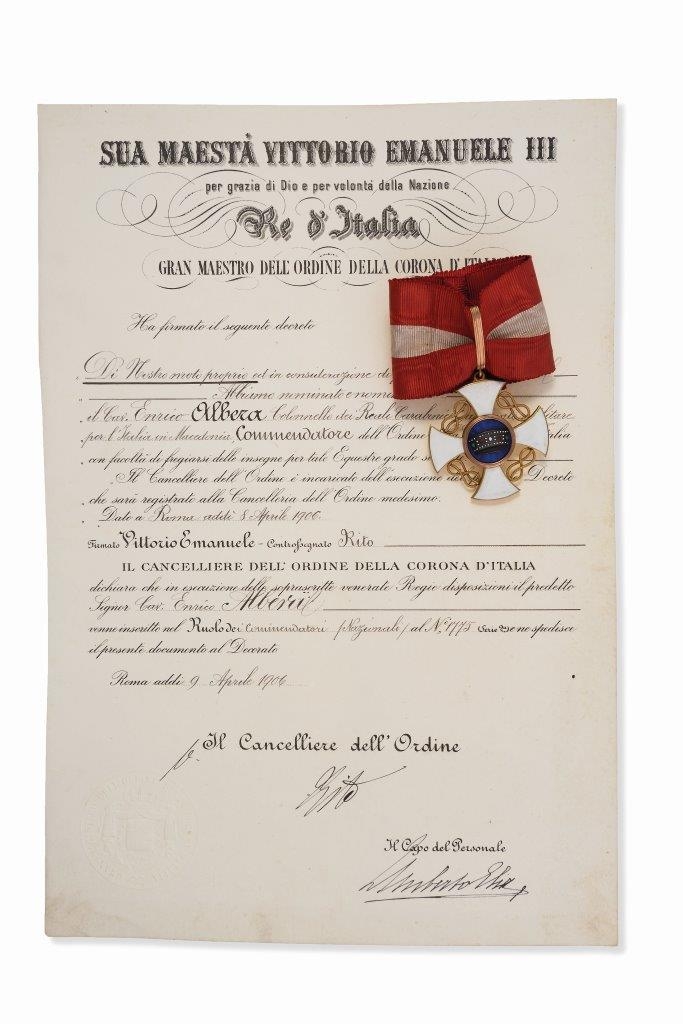 SUA MAESTÀ VITTORIO EMANUELE III
per grazia di Dio e per volontà della Nazione
Re d'Italia
GRAN MAESTRO DELL'ORDINE DELLA CORONA D'
Ha firmato il seguente decreto
Di Nostro moto proprio ed in considerazione di
Abbiamo nominato e
il Cav. Enrico Albera Colonnello dei Reali
per l'Italia in Macedonia, Commendatore dell'Ordine
con facoltà di fregiarsi delle insegne per tale Equestre grado
Il Cancelliere dell'Ordine è incaricato dell'esecuzione del Decreto
che sarà registrato alla Cancelleria dell'Ordine medesimo.
Dato a Roma addì 8 Aprile 1906
Firmato Vittorio Emanuele - Controssegnato
IL CANCELLIERE DELL' ORDINE DELLA CORONA D'ITALIA
dichiara che in esecuzione delle soprascritte venerate Regie disposizioni il predetto
Signor Cav. Enrico Albera
venne inscritto nel Ruolo dei Commendatori (Nazionali) al N.° 1775 e ne spedisce
il presente documento al Decorato
Roma addì 9 Aprile 1906
Il Cancelliere dell'Ordine
Il Capo del Personale